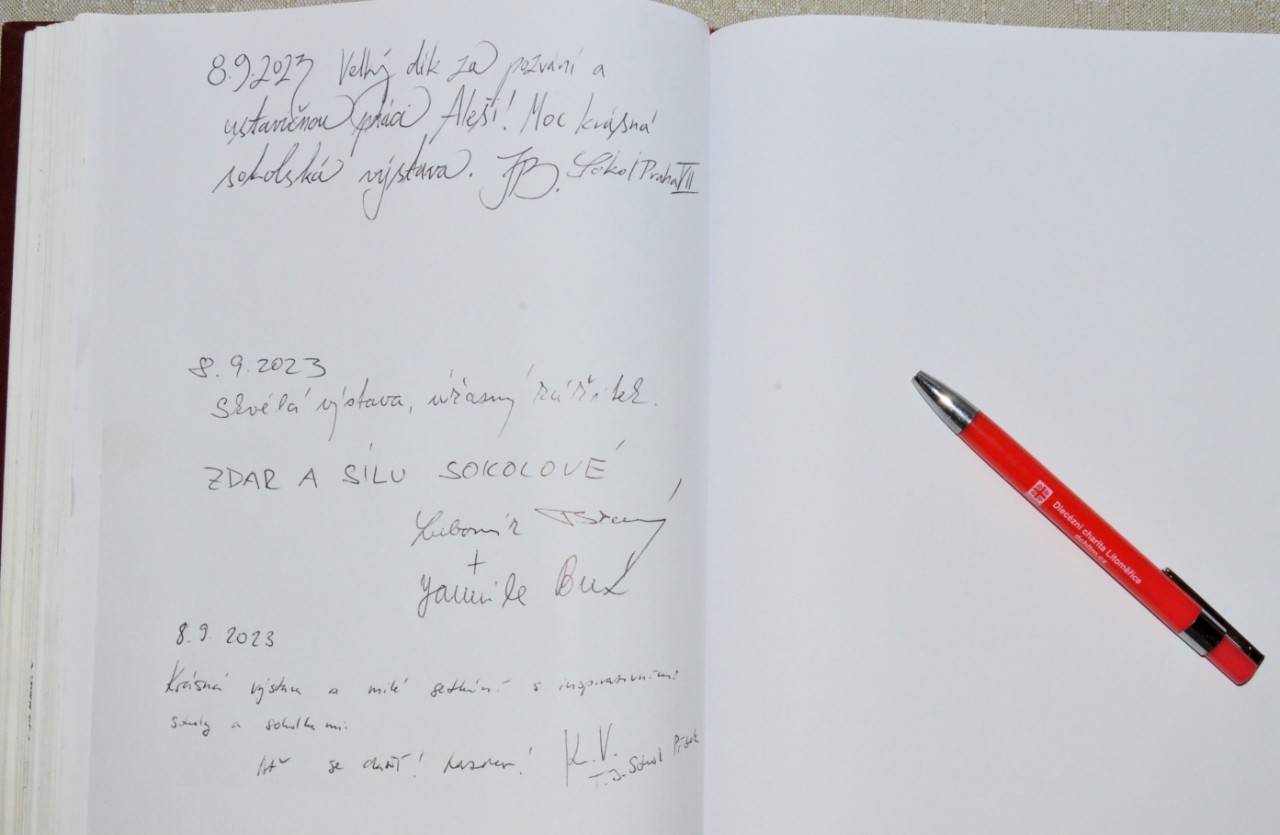 8.9.2023 Velký dík za pozvání a
ustavičnou práci Aleši! Moc krásná
sokolská výstava. JB. Sokol Praha VII
8.9.2023
Skvělá výstava, úžasný zážitek.
ZDAR A SÍLU SOKOLOVÉ
Lubomír
+
Jarmila
8.9.2023
Krásná výstava a milé setkání s inspirativními
sokoly a sokolkami.
Ať se daří! Nazdar! K.V.
T.J. Sokol Písek
Diecézní charita Litoměřice
dchltm.cz